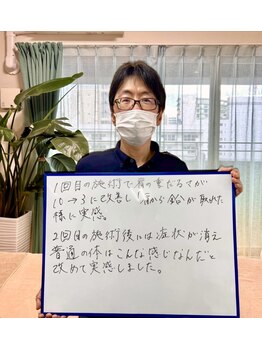 1回目の施術で肩の重だるさが
10→3に改善し肩から鉛が取れた
様に実感。
2回目の施術後には症状が消え
普通の体はこんな感じなんだと
改めて実感しました。